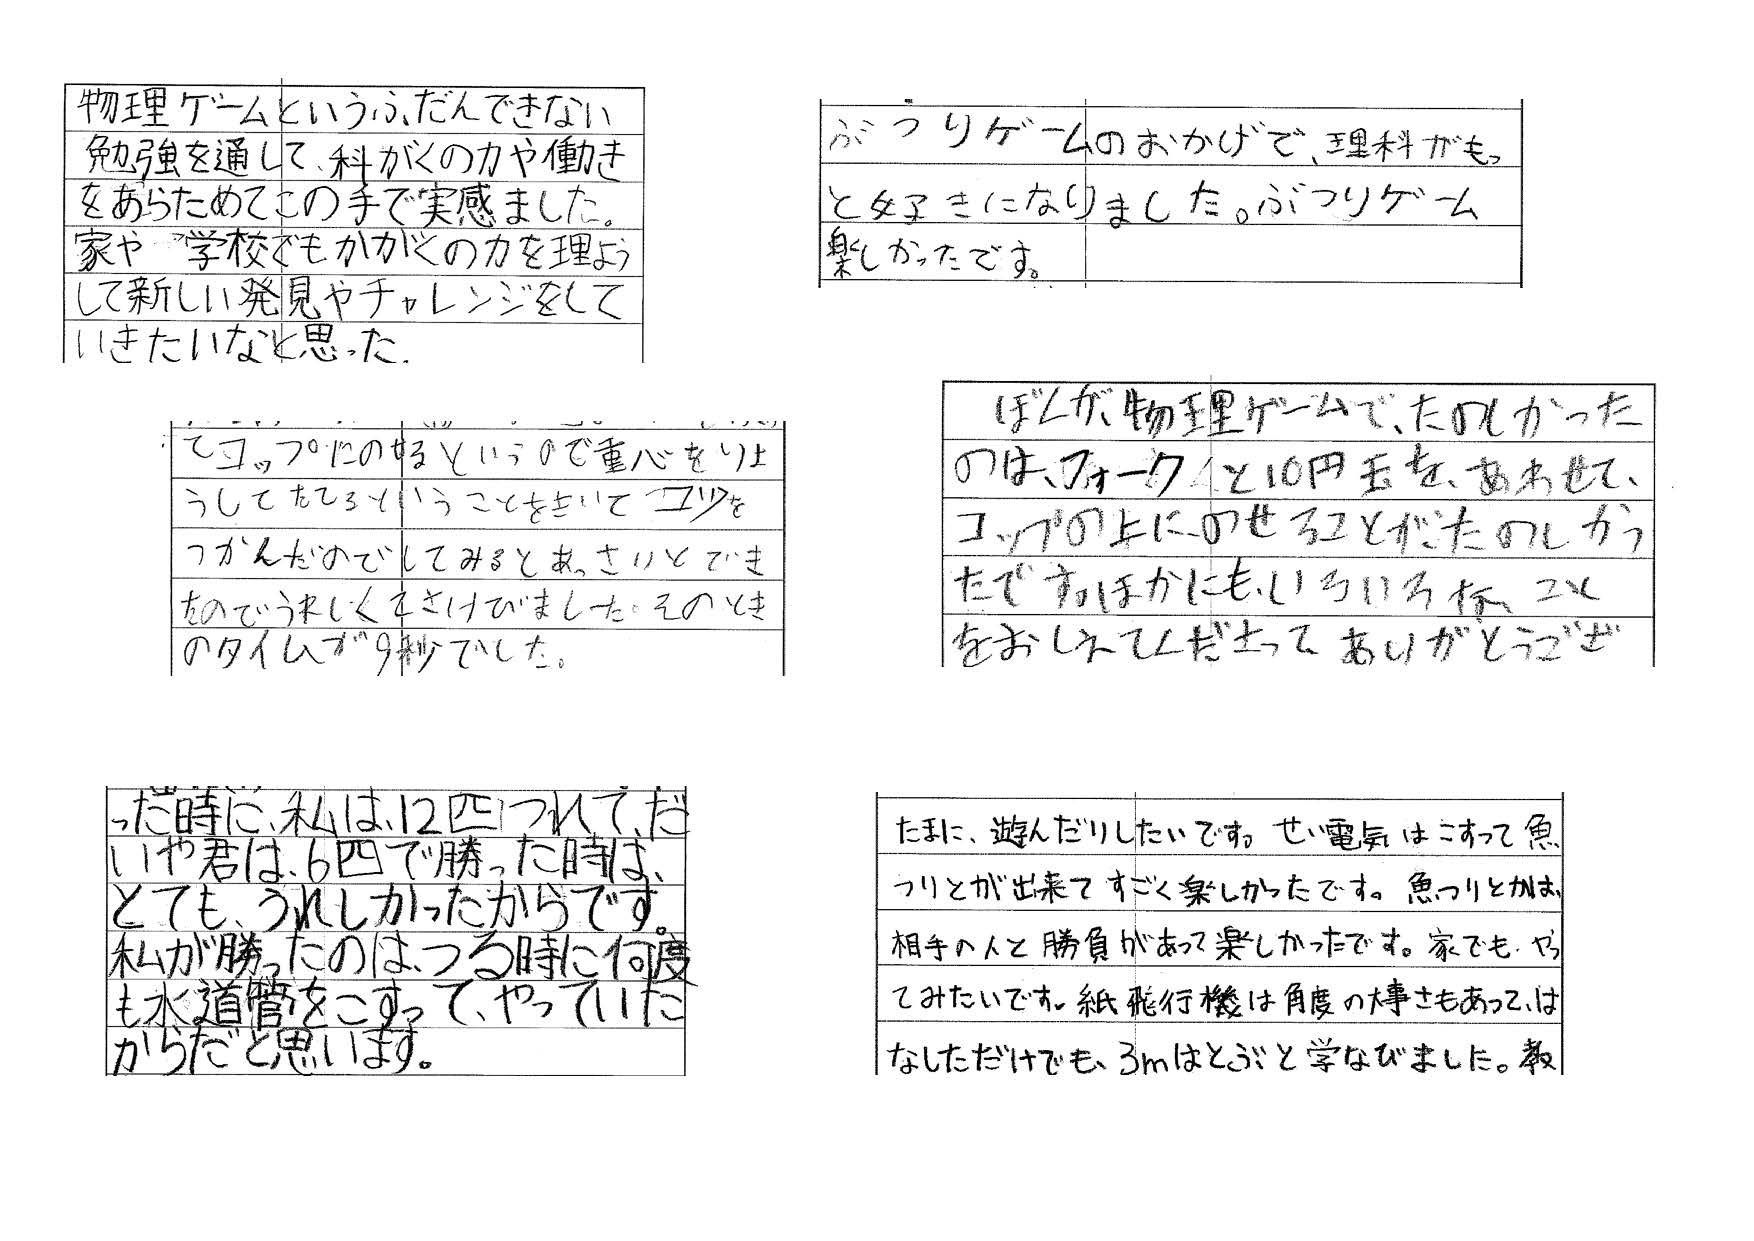 物理ゲームというふだんできない
勉強を通して、科がくの力や働き
をあらためてこの手で実感ました。
家や学校でもかがくの力を理よう
して新しい発見やチャレンジをして
いきたいなと思った.
ぶつりゲームのおかげで、理科がもっ
と好きになりました。ぶつりゲーム
楽しかったです。
てコップにのせるというので重心をりよ
うしてたてるということをきいてコツを
つかんだのでしてみるとあっさりとでき
たのでうれしくてさけびました。そのとき
のタイムが9秒でした。
ぼくが、物理ゲームで、たのしかった
のは、フォークと10円玉を、あわせて、
コップの上にのせることが、たのしかっ
たです。ほかにも、いろいろな、こと
をおしえてくださってありがとうござ
った時に、私は、12匹つれて、だ
いや君は、6匹で勝った時は、
とても、うれしかったからです。
私が勝ったのは、つる時に何度
も水道管をこすって、やっていた
からだと思います。
たまに、遊んだりしたいです。せい電気はこすって魚
つりとが出来てすごく楽しかったです。魚つりとかは、
相手の人と勝負があって楽しかったです。家でも、やっ
てみたいです。紙飛行機は角度の大事さもあって、は
なしただけでも、3mはとぶと学なびました。教